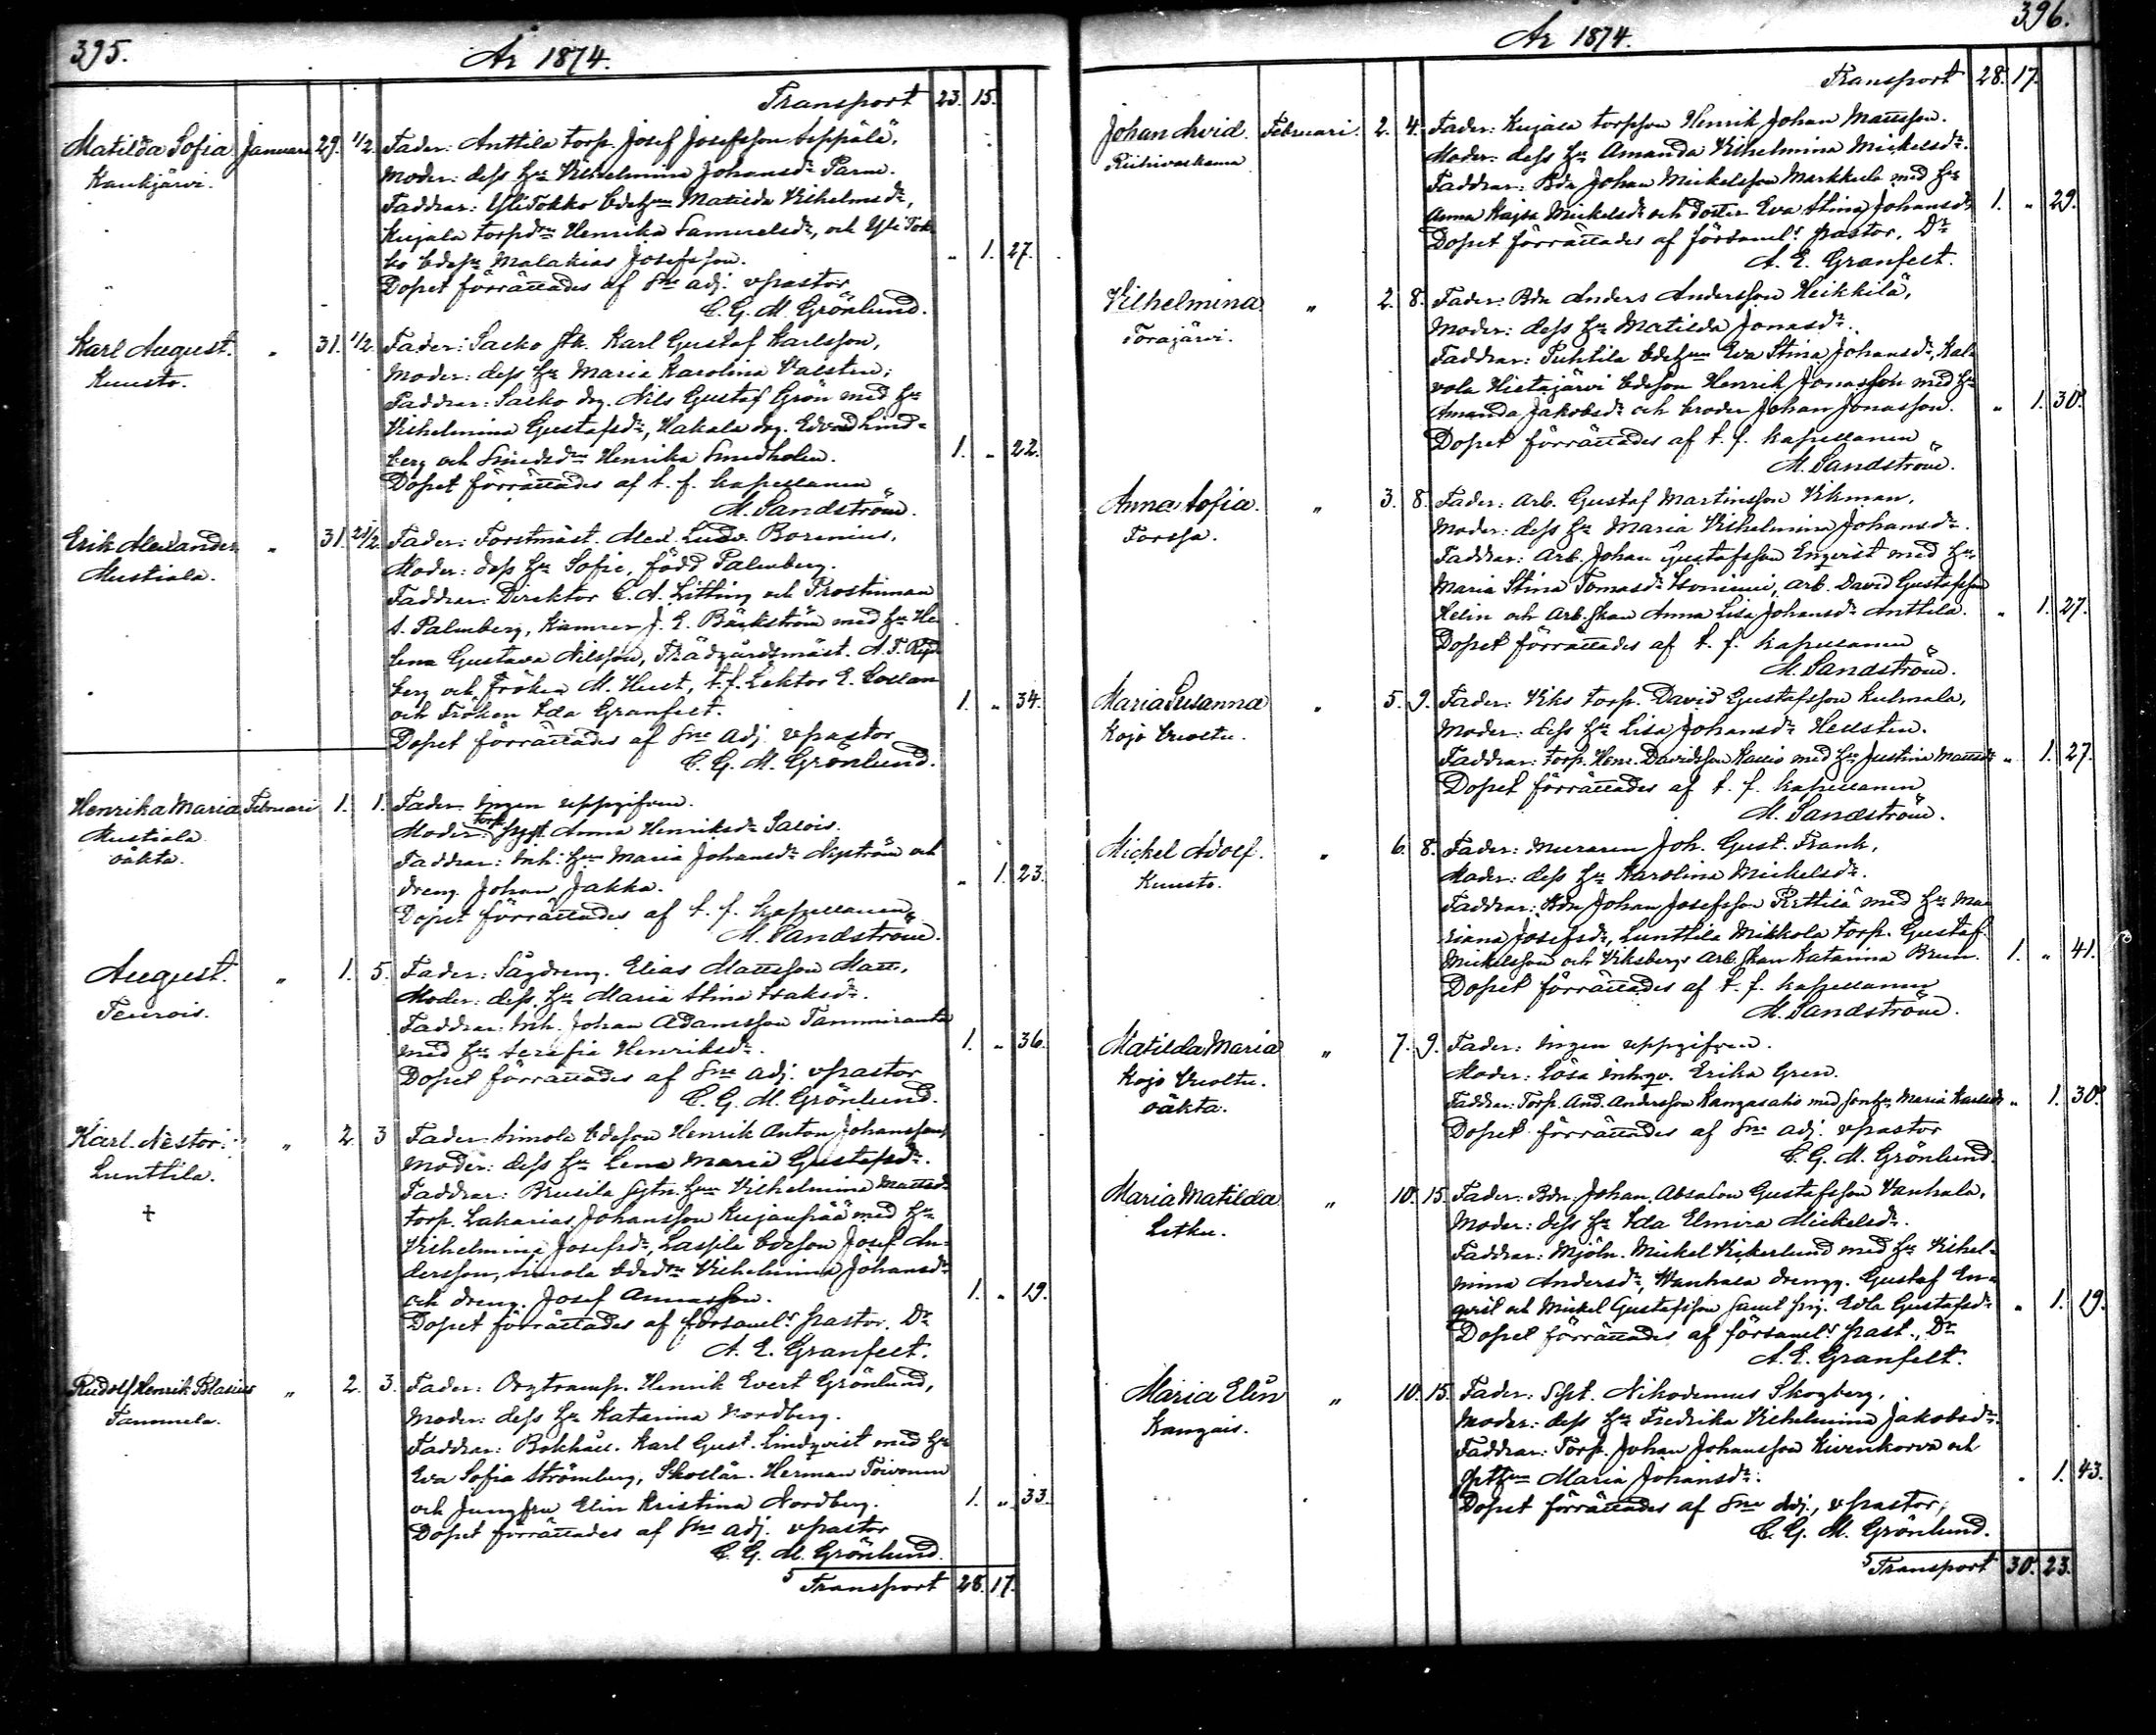 395.
År 1874.
Transport 23. 15.
Matilda Sofia Januari 29. 1/2 Fader: Anttila torp. Josef Josefsson Seppälä,
Kaukjärvi. Moder: dess Hu Vilhelmina Johansdr Parm.
Faddrar: Yli Tokko bdehun Matilda Vilhelmsdr,
Kujala torpdrn Henrika Samuelsdr, och Yli Tok-
ko bdesn Malakias Josefsson. " 1. 27.
Dopet förrättades af Sne adj. vpastor
C. G. M. Grönlund.
Karl August. " 31. 1/2 Fader: Sacko Karl Gustaf Karlsson,
Kuusto. Moder: dess Hu Maria Karolina Valsten;
Faddrar: Sacko drg. Nils Gustaf Grön med Hu
Vilhelmina Gustafsdr, Hakala drg. Edvard Lind-
berg och Smedsdrn Henrika Smedholm. 1. " 22.
Dopet förrättades af t. f. kapellanen
M. Sandström.
Erik Alexander " 31. 21/2 Fader: Forstmäst. Alex. Ludv. Borenius,
Mustiala. Moder: dess Hu Sofie, född Palmberg.
Faddrar: Direktor C. A. Litting och Prostinnan
S. Palmberg, Kamrer J. E. Bäckström med Hu He-
lena Gustava Nilsson, Trädgårdsmäst. A. F.
berg och Fröken M. Hust, t. f. Lektor E.
och Fröken Ida Granfelt. 1. " 34.
Dopet förrättades af Sne adj. vpastor
C. G. M. Grönlund.
Henrika Maria Februari 1. 1. Fader ingen uppgifven.
Mustiala Moder: torp. pigt. Anna Henriksdr Salois.
oäkta. Faddrar: inh. hun Maria Johansdr Nyström och
dreng Johan Jakka. " 1. 23.
Dopet förrättades af t. f. kapellanen
M. Sandström.
August. " 1. 5. Fader: Sågdreng. Elias Mattsson Matt,
Teurois. Moder: dess Hu Maria Stina Isaksdr.
Faddrar: inh. Johan Adamsson Tammiranta
med Hu Serafia Henriksdr. 1. " 36.
Dopet förrättades af Sne adj. vpastor
C. G. M. Grönlund.
Karl Nestor. " 2. 3 Fader Simola bdeson Henrik Anton Johansson,
Lunttila. Moder: dess Hu Lena Maria Gustafsdr.
+ Faddrar: Brusila sytn. hun Vilhelmina Mattsdr
torp. Zakarias Johansson Kujanpää med Hu
Vilhelmina Josefsdr, Laspila bdeson Josef An-
dersson, Simola bdedrn Vilhelmina Johansdr
och dreng. Josef Annasson. 1. " 19.
Dopet förrättades af församls pastor, Dr
A. E. Granfelt.
Rudolf Henrik Blasius " 2. 3. Fader: Orgtramp. Henrik Evert Grönlund,
Tammela. Moder: dess Hu Katarina Nordberg.
Faddrar: Bokhåll. Karl Gust. Lindqvist med Hu
Eva Sofia Strömberg, Skollär. Herman Toivonen
och Jungfru Elin Kristina Nordberg. 1. " 33.
Dopet förrättades af Sne adj. vpastor
C. G. M. Grönlund.
5 Transport 28. 17.
396.
År 1874.
Transport 28. 17.
Johan Arvid. Februari. 2. 4. Fader: Kujala torpson Henrik Johan Mattsson.
Riihivalkama Moder: dess Hu Amanda Vilhelmina Mickelsdr.
Faddrar: Bdn Johan Mickelsson Markkula med Hu
Anna Kajsa Mickelsdr och dotter Eva Stina Johansdr 1. " 29.
Dopet förrättades af församls pastor, Dr
A. E. Granfelt.
Vilhelmina " 2. 8. Fader: Bdn Anders Andersson Heikkilä,
Torajärvi. Moder: dess Hu Matilda Jonasdr.
Faddrar: Puhtila bdehun Eva Stina Johansdr, Kal-
vola Hietajärvi bdeson Henrik Jonasson med Hu
Amanda Jakobsdr och broder Johan Jonasson. " 1. 30.
Dopet förrättades af t. f. kapellanen
M. Sandström.
Anna Sofia. " 3. 8. Fader: Arb. Gustaf Martinsson Vikman,
Forssa. Moder: dess Hu Maria Vilhelmina Johansdr.
Faddrar: Arb. Johan Gustafsson Enqvist med Hu
Maria Stina Tomasdr Isoniemi, arb. David Gustafsson
Helin och Arb. skan Anna Lisa Johansdr Anttila. " 1. 27.
Dopet förrättades af t. f. kapellanen
M. Sandström.
Maria Susanna " 5. 9. Fader: Viks torp. David Gustafsson Kulmala,
Kojo Vuoltu. Moder: dess Hu Lisa Johansdr Hellsten.
Faddrar: torp. Henr. Davidsson Kallio med Hu Justina Mattsdr " 1. 27.
Dopet förrättades af t. f. kapellanen
M. Sandström.
Mickel Adolf. " 6. 8. Fader: muraren Joh. Gust. Frank,
Kuusto. Moder: dess Hu Karolina Mickelsdr.
Faddrar: Bdn Johan Josefsson Perttilä med Hu Ma-
riana Josefsdr, Lunttila Mikkola torp. Gustaf
Mickelsson och Viksbergs arb. skan Katarina Brun. 1. " 41.
Dopet förrättades af t. f. kapellanen
M. Sandström.
Matilda Maria " 7. 9. Fader: ingen uppgifven.
Kojo Vuoltu. Moder: lösa inhqv. Erika Gren.
oäkta. Faddrar: Torp. And. Andersson Kangasalo med sonhu Maria Karlsdr " 1. 30.
Dopet förrättades af Sne adj. vpastor
C. G. M. Grönlund.
Maria Matilda " 10. 15. Fader: Bdn. Johan Absalon Gustafsson Vanhala,
Letku. Moder: dess Hu Ida Elmira Mickelsdr.
Faddrar: Mjöln. Mickel Vikerlund med Hu Vilhel-
mina Andersdr, Vanhala drengg. Gustaf En-
qvist och Mickel Gustafsson samt pig. Edla Gustafsdr " 1. 19.
Dopet förrättades af församls past., Dr
A. E. Granfelt.
Maria Elin " 10. 15. Fader: Sytt. Nikodemus Skogberg,
Kangais. Moder: dess Hu Fredrika Vilhelmina Jakobsdr.
Faddrar: Torp. Johan Johansson Kivenkorva och
Maria Johansdr. " 1. 43.
Dopet förrättades af Sne Adj., vpastor,
C. G. M. Grönlund.
5 Transport 30. 23.